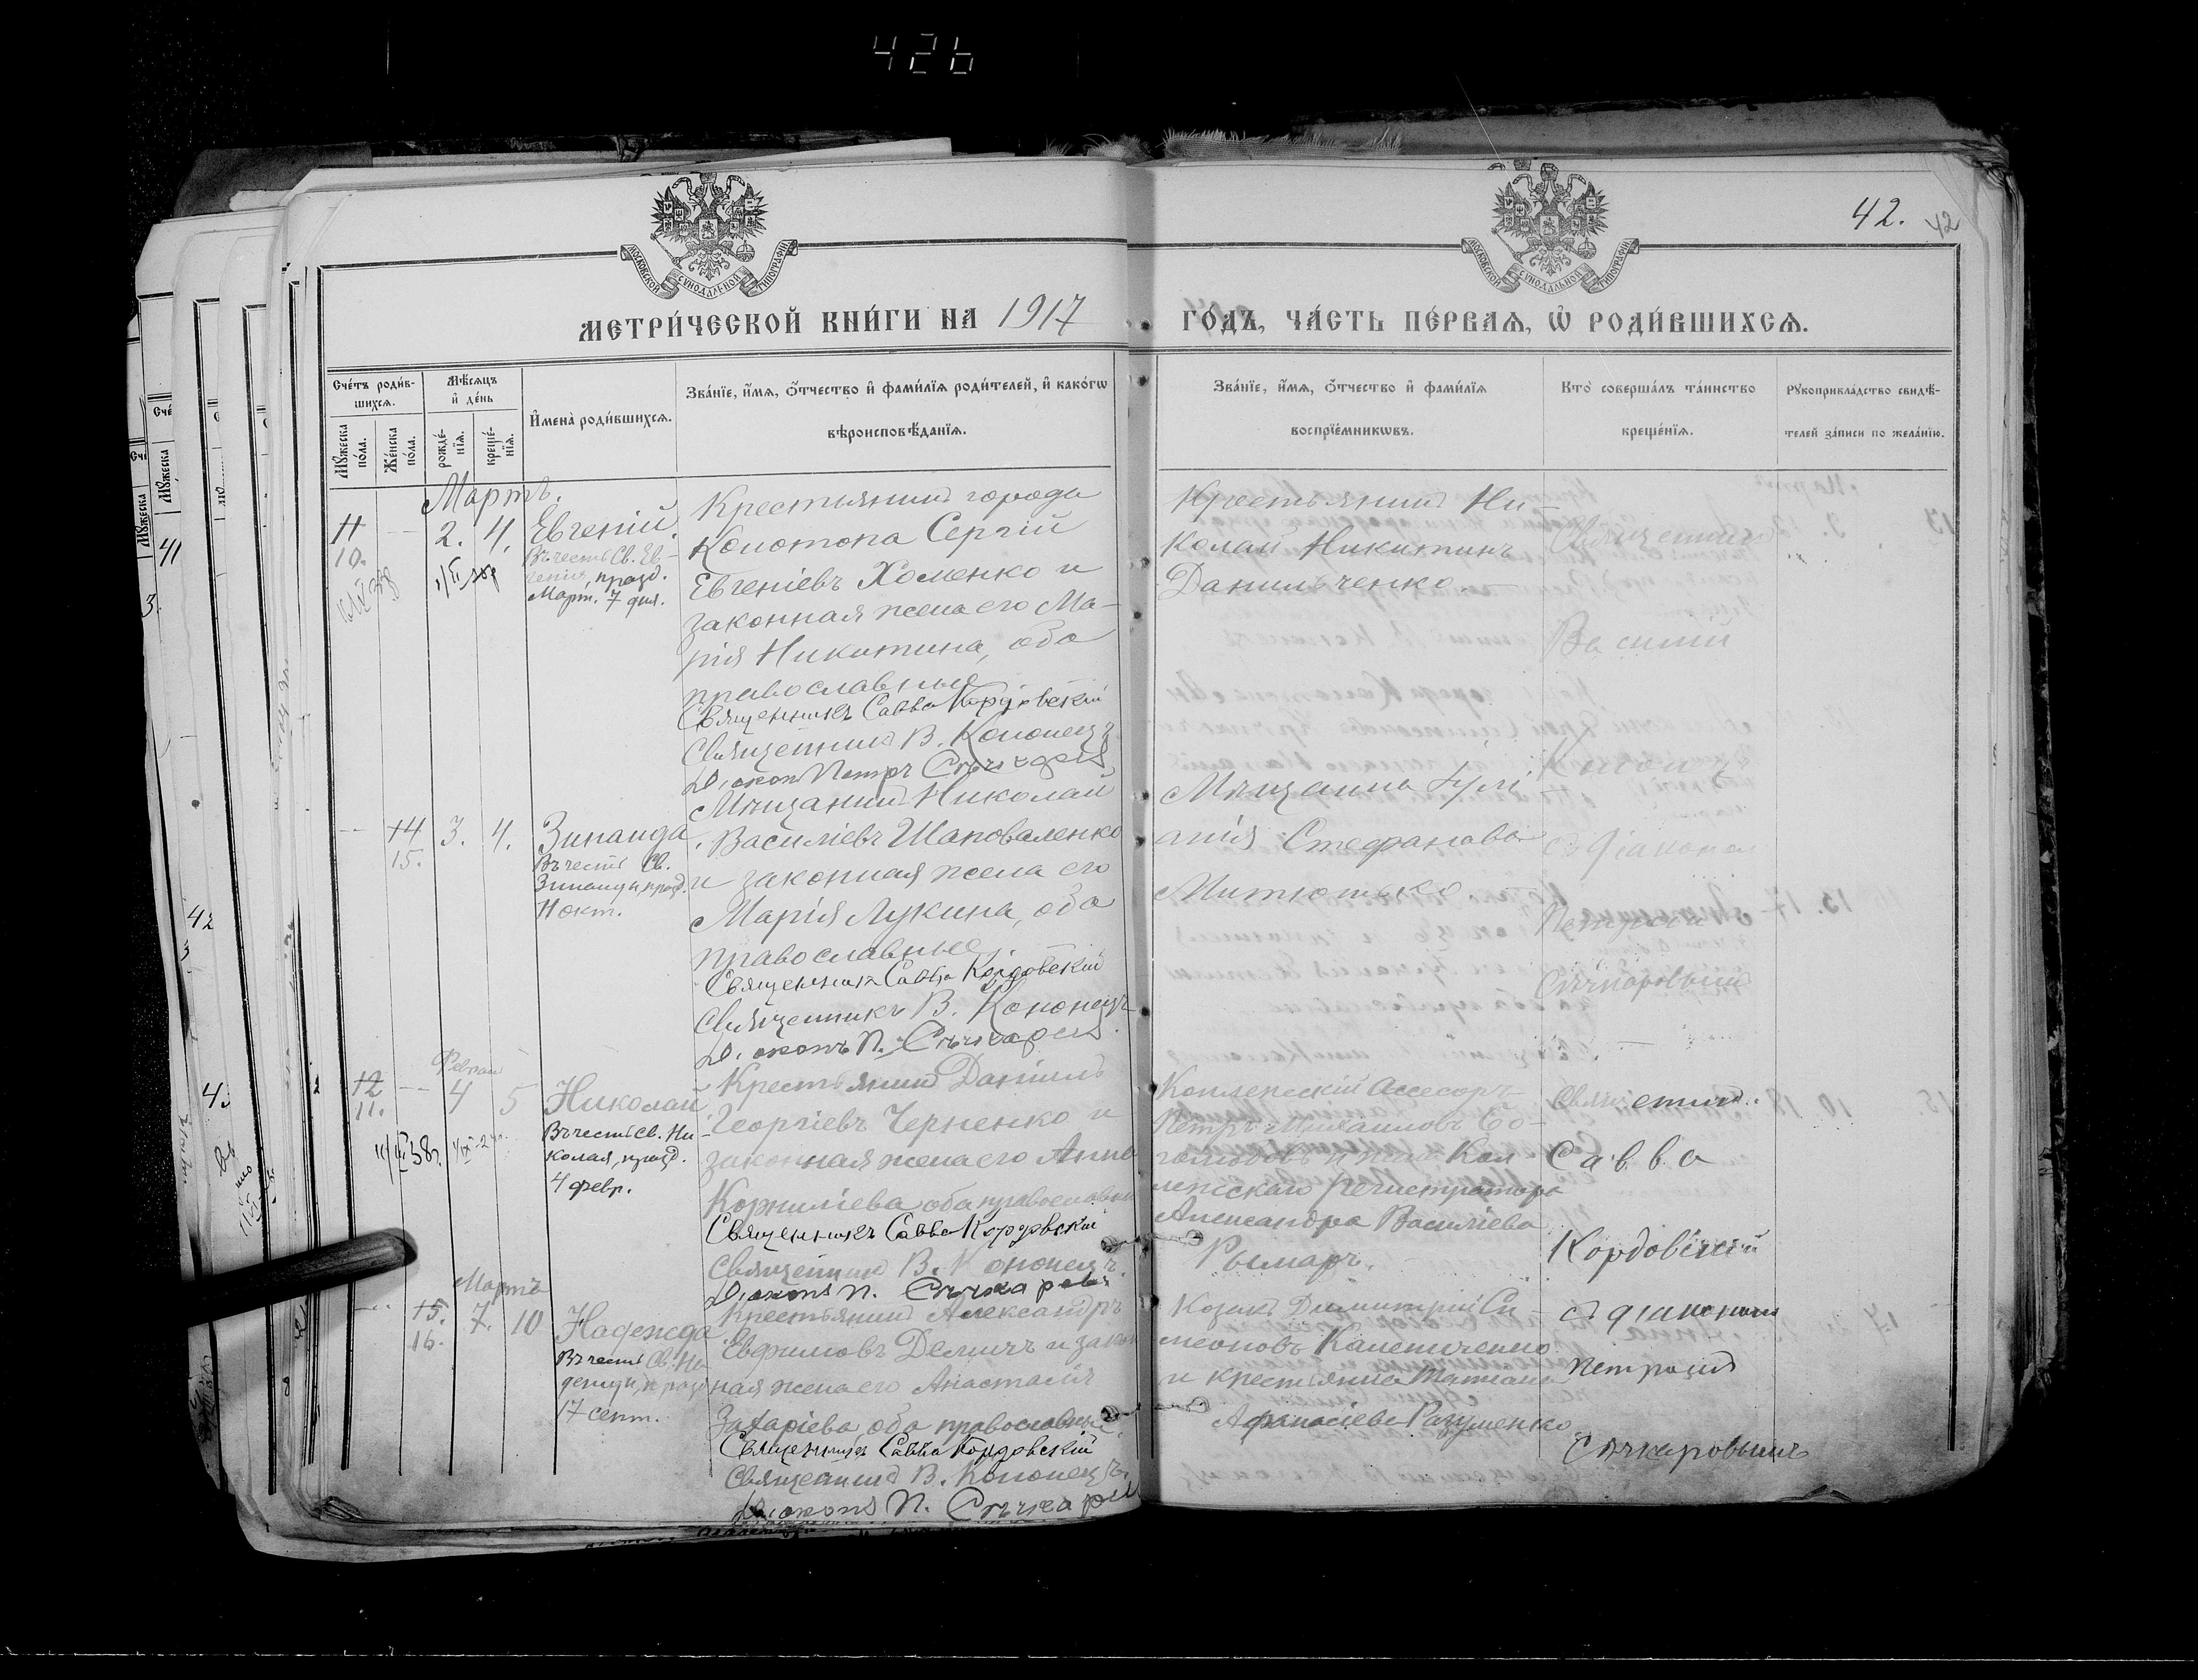 426
42. 42
МОСКОВСКОЙ СѴНОДАЛЬНОЙ ТИПОГРАФІИ
МОСКОВСКОЙ СѴНОДАЛЬНОЙ ТИПОГРАФІИ
МЕТРИ́ЧЕСКОЙ КНИ́ГИ НА 1917 ГО́ДЪ, ЧА́СТЬ ПЕ́РВАѦ, Ѽ РОДИ́ВШИХСѦ.
Сче́тъ роди́в-
шихсѧ.
Мꙋ́жеска по́ла.
Же́нска по́ла.
Мѣ́сѧцъ и҆ де́нь
рожде́-
нїѧ.
креще́-
нїѧ.
И҆мена̀ роди́вшихсѧ.
Зва́нїе, и҆́мѧ, ѻ҆́тчество и҆ фами́лїѧ роди́телей, и҆ како́гѡ
вѣроисповѣ́данїѧ.
Зва́нїе, и҆́мѧ, ѻ҆́тчество и҆ фами́лїѧ
воспрїе́мникѡвъ.
Кто̀ соверша́лъ та́инство
креще́нїѧ.
Рꙋкоприкла́дство свидѣ́-
телей за́писи по жела́нїю.
Мартъ.
11 — 2. 4. Евгеній.
10.
Въ честь Св. Ев-
генія, празд.
Март. 7 дня.
Крестьянинъ города
Конотопа Сергій
Евгеніевъ Хоменко и
законная жена его Ма-
рія Никитина, оба
православные
Священникъ Савва Кордовскій
Священникъ В. Кононецъ
Діаконъ Петръ
Крестьянинъ Ни-
колай Никитинъ
Данильченко.
Священникъ
Василій
Кононецъ
— 14 3. 4. Зинаида
15.
Въ честь Св.
Зинаиды, празд.
11 окт.
Мѣщанинъ Николай
Василіевъ Шаповаленко
и законная жена его
Марія Лукина, оба
православные.
Священникъ Савва Кордовскій
Священникъ В. Кононецъ
Діаконъ П.
Мѣщанка Іулі-
анія Стефанова
Митютько
съ діакономъ
Петромъ
Феврал
12 — 4 5 Николай
11.
Въ честь Св. Ни-
колая, празд.
4 февр.
Крестьянинъ Даніилъ
Георгіевъ Черненко и
законная жена его Анна
Корниліева оба православные
Священникъ Савва Кордовскій
Священникъ В. Кононецъ.
Діаконъ П.
Коллежскій Ассесоръ
Петръ Михаиловъ
лежскаго регистратора
Александра Василіева
Рымаръ.
Священникъ
Савва
Кордовскій
Мартъ
15. 7. 10 Надежда
16.
Въ честь Св. На-
дежды, празд
17 сент.
Крестьянинъ Александръ
Евфимовъ Демичъ и закон
ная жена его Анастасія
Захаріева, оба православные.
Священникъ Савва Кордовскій
Священникъ В. Кононецъ.
Діаконъ П.
Козакъ Димитрій Си-
меоновъ
и крестьянка Татіана
Афанасіева Разуменко.
съ діакономъ
Петромъ
Сѣчкаровымъ